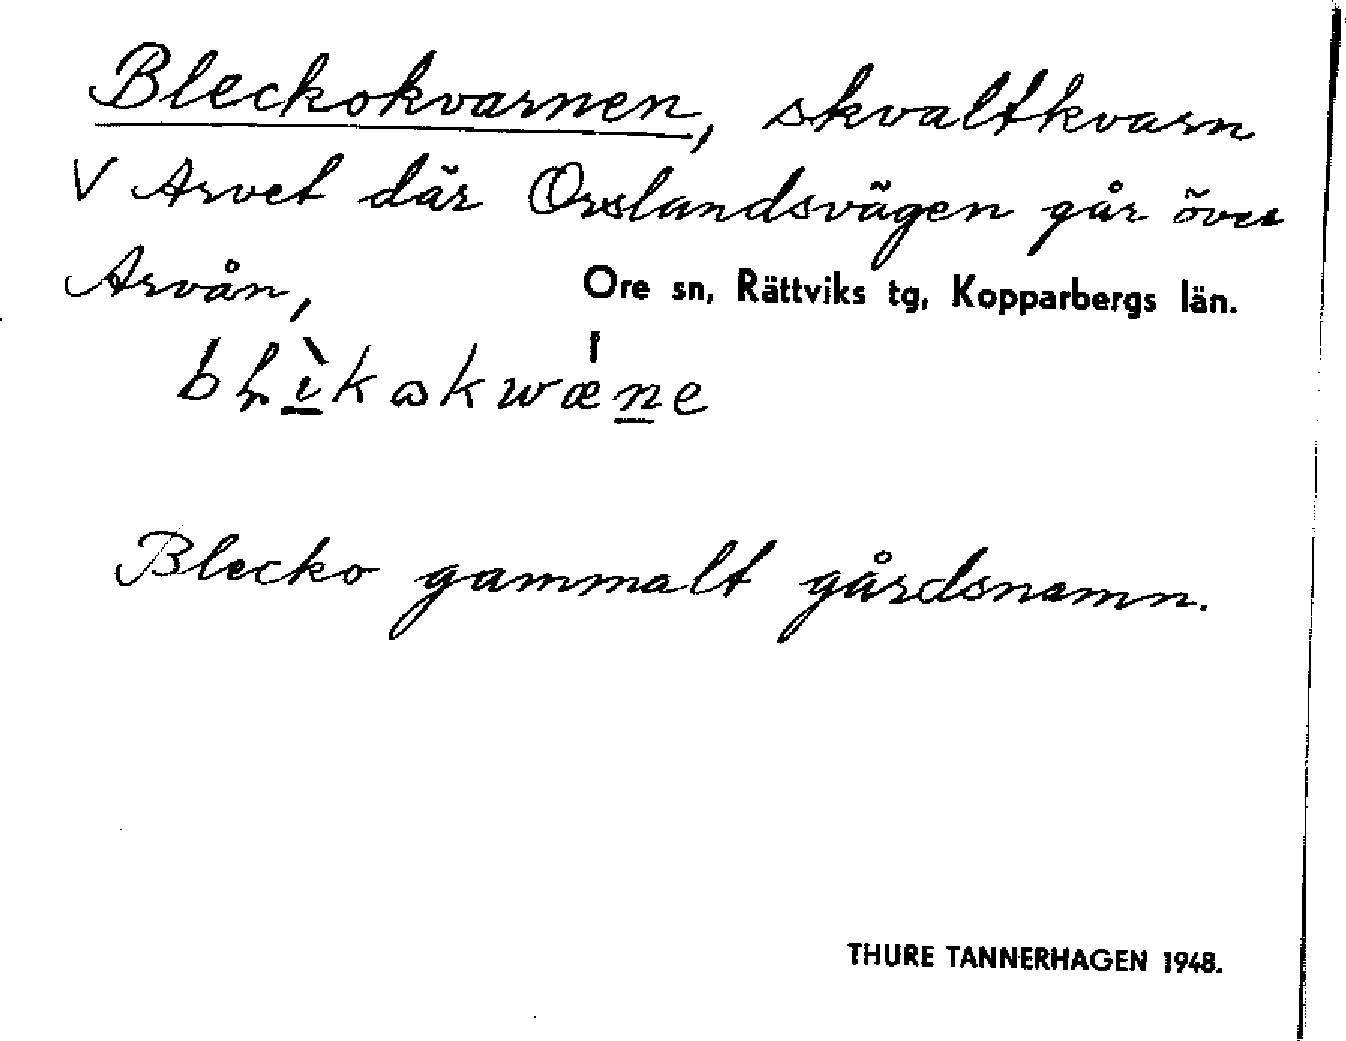 Bleckokvarnen, skvaltkvarn
V Arvet där Orslandsvägen går över
Arvån,
Ore sn, Rättviks tg, Kopparbergs län.
Blecko gammalt gårdsnamn.
THURE TANNERHAGEN 1948.